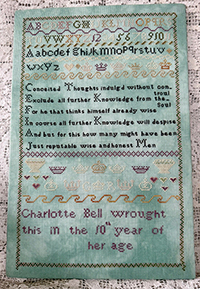 AB GH
VWXY 12 56 910
Aabcdef ghikmnopqrstuv
wxyz
Conceited Thoughts indulgd without con
troul
Exclude all further Knowledge from the
Soul
For he that thinks himself already wise
In course all further Knowledge will despise
And but for this how many might have been
Just reputable wise and honest Men
Charlotte Bell wrought
this in the 10th year of
her age